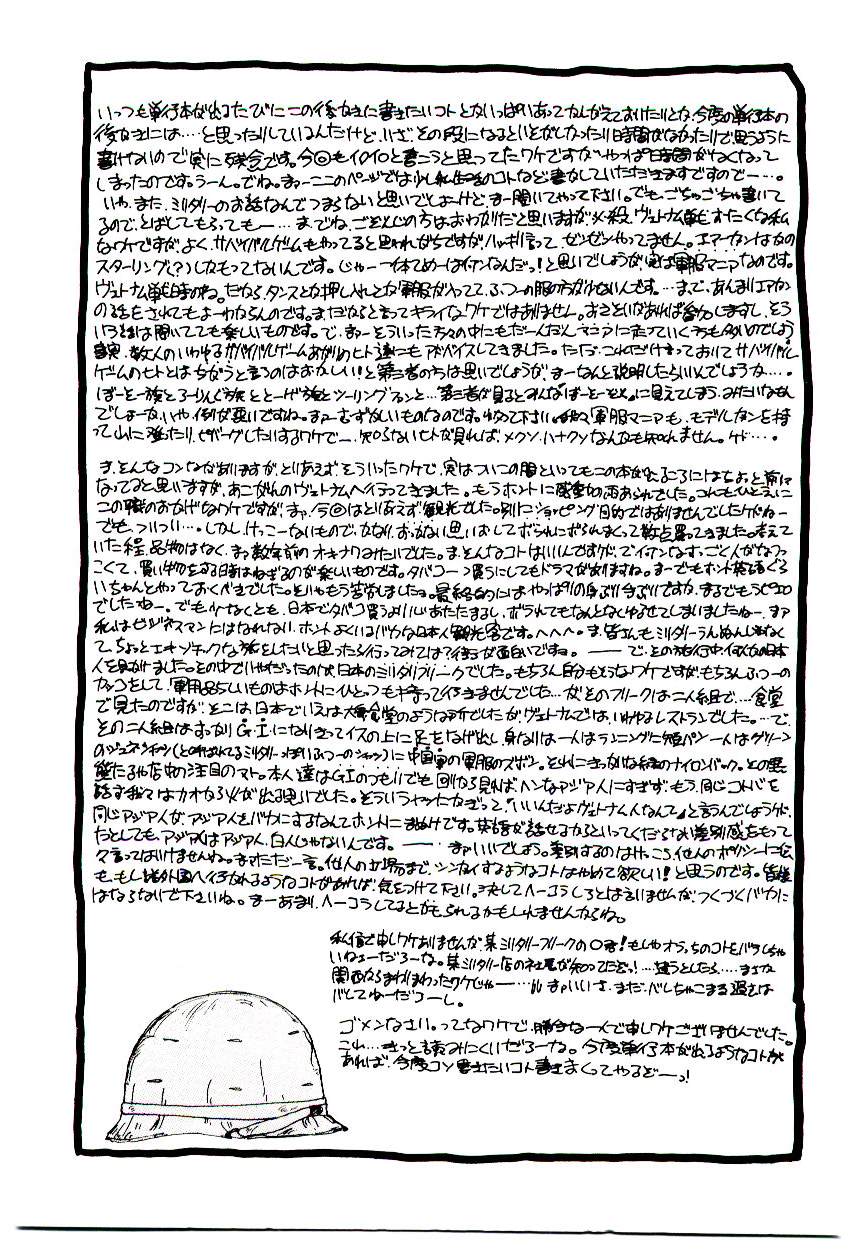 いっつも単行本が出るたびにこの後がきに書きたいコトとかいっぱいあってかんがえておいたりとか、今度の単行本の
後がきには…と思ったりしているんだけど、いざその段になるといそがしかったり時間がなかったりで思うように
書けないので実に残念です。今回もイロイロと書こうと思ってたワケですがやっぱ時間がなくなって
しまったのです。うーん。でね。まァーここのページでは少し私生活のコトなど書かしていただきますですのでー…。
いや、また、ミリタリーのお話なんでつまらないと思いでしょーけど、まー聞いてやって下さい。でもごちゃごちゃ書いて
るので、とばしてもらってもー…。までね、ごぞんじの方はおわかりだと思いますが、ヴェトナム戦争すたくな私
なワケですが、よく、サバイバルゲームもやってると思われがちですが、ハッキリ言って、ゼンゼンやってません。エアーガンはかの
スターリング(?)しかもってないんです。じゃー一体てめーは何なんだっ!と思いでしょうが、実は軍服マニアなのです。
ヴェトナム戦争時のね。だから、タンスとか押し入れとか軍服が入ってて、ふつーの服の方が少ないんです。…まで、あんまりエアガン
の話をされてもよーわからんのです。まだだからと言ってキライなワケではありません。おさそいがあれば参加しますし、そう
いうときは聞いてても楽しいものです。で、まァーそういった方々の中にもだーんだんマニアに走っていく方も多いのでしょう
事実、数人のいわゆるサバイバルゲームあがりのヒト達にもアドバイスしてきました。ただ、これだけ言っておいてサバイバル
ゲームのヒトとはちがうと言うのはおかしい!と第三者の方は思いでしょうが、まーなんと説明したらいいんでしょうか…。
ぼーそー族とろーりんぐ族ととーげ族とツーリングランと…第三者が見るとみんな"ぼーそー"に見えてしまう、みたいなもん
でしょーか。いや、例が悪いですね。まァーむずかしいものなのです。ゆるって下さい。軍服マニアも、モデルガンを持
って山に登ったり、ビバークしたりするワケでー、知らないヒトが見れば、メクソ、ハナクソなんかも知れません。ケド…。
ま、そんなコンなありますが、とりあえず、そういったワケで、実はついこの間といってもこの本が出るころにはちょっと前に
なってると思いますが、あこがれのヴェトナムへ行ってきました。もうホントに感動の雨あられでした。これもひとえに
この職のおかげなワケですが、まァ、今回はとりあえず観光でした。別にショッピング目的ではありませんでしたケドねー
でも、ついつい…。しかし、けっこーないもので、かなり、おっかない思いおしてボられにボられまくって数点買ってきました。考えて
いた程、品物はなく、まァ数年前のオキナワみたいでした。ま、そんなコトはいいんですケド、
こくて、買い物をする時はねぎるのが楽しいものです。タバコ一つ買うにしてもドラマがありますね。まーでもホント英語ぐら
いちゃんとやっておくべきでした。そりゃもう苦労しました。最終的にはやっぱり身ぶり手ぶりですか、まるでもうピエロ
でしたねー。でも少なくとも、日本でタバコ買うより、ボラれてもなんとなくゆるせてしまいましたねー、まァ
私はビジネスマンにはなれない。ホント、よくいるバカな日本人観光客です。へへへ。ま、皆さんもミリタリーうんぬんじゃなく
て、ちょっとエキゾチックな旅をしたいと思ったら行ってみては?面白いですね。 ―― で、その旅行中、何人かの日本
人を見かけました。その中でいやだったのが、日本のミリタリフリークでした。もちろん自分もそうなワケですが、もちろんふつーの
カッコをして、軍用品らしいものはホントにひとつも持って行きませんでした…が、そのフリークは二人組で…食堂
で見たのですが、そこは、日本でいえば大衆食堂のような所でしたが、ヴェトナムでは、いわゆるレストランでした。…で、
その二人組はすっかりG.I.になりきってイスの上に足をなげ出し、身なりは一人はランニングに短パン一人はグリーン
のジャングルシャツ(と呼ばれてるミリタリーっぽいふつーのシャツ)に中国軍の軍服のズボン。とりわけきったない緑のナイロンバック。その悪
態たるや店中の注目のマト。本人達はG.I.のつもりでも回りから見れば、ヘンなアジア人にすぎず、もう、同じコトバを
話す我々はカオから火が出る思いでした。そういうヤツにかぎって「いいんだよヴェトナム人なんて」と言うんでしょうケド、
同じアジア人が、アジア人をバカにするなんてホントにまぬけです。英語が話せるからといってくだらない差別感をもって
たとしても、アジア人はアジア人、白人じゃないんです。 ―― まァいいでしょう。差別するのはけっこう、他人のポリシーに
々言ってはいけませんね。まァただ一言。他人の立場まで、シンガイするようなコトはやめて欲しい!と思うのです。皆様
も、もし諸外国へ行かれるようなコトがあれば、気をつけて下さい。決してヘーコラしろとは言いませんが、つくづくバカに
はならないで下さいね。まーあまり、ヘーコラしてるとからんでくるかもしれませんからね。
私信で申しワケありませんが、某ミリタリーフリークの○君!もしやオラっちのコトをバラしちゃ
いねェーだろーな。某ミリタリー店の社長が知ってたぞっ!…違うとしたら……まさか
関西からまわりまわったワケじゃー…。まァいいさ、まだ、バレちゃこまる過去は
バレてねーだろーし。
ゴメンなさい。ってなワケで、勝手な一人で申しワケございませんでした。
これ…きっと読みにくいだろーな。今度単行本が出るようなコトが
あれば、今度コソ書きたいコト書きまくってやるぞーっ!